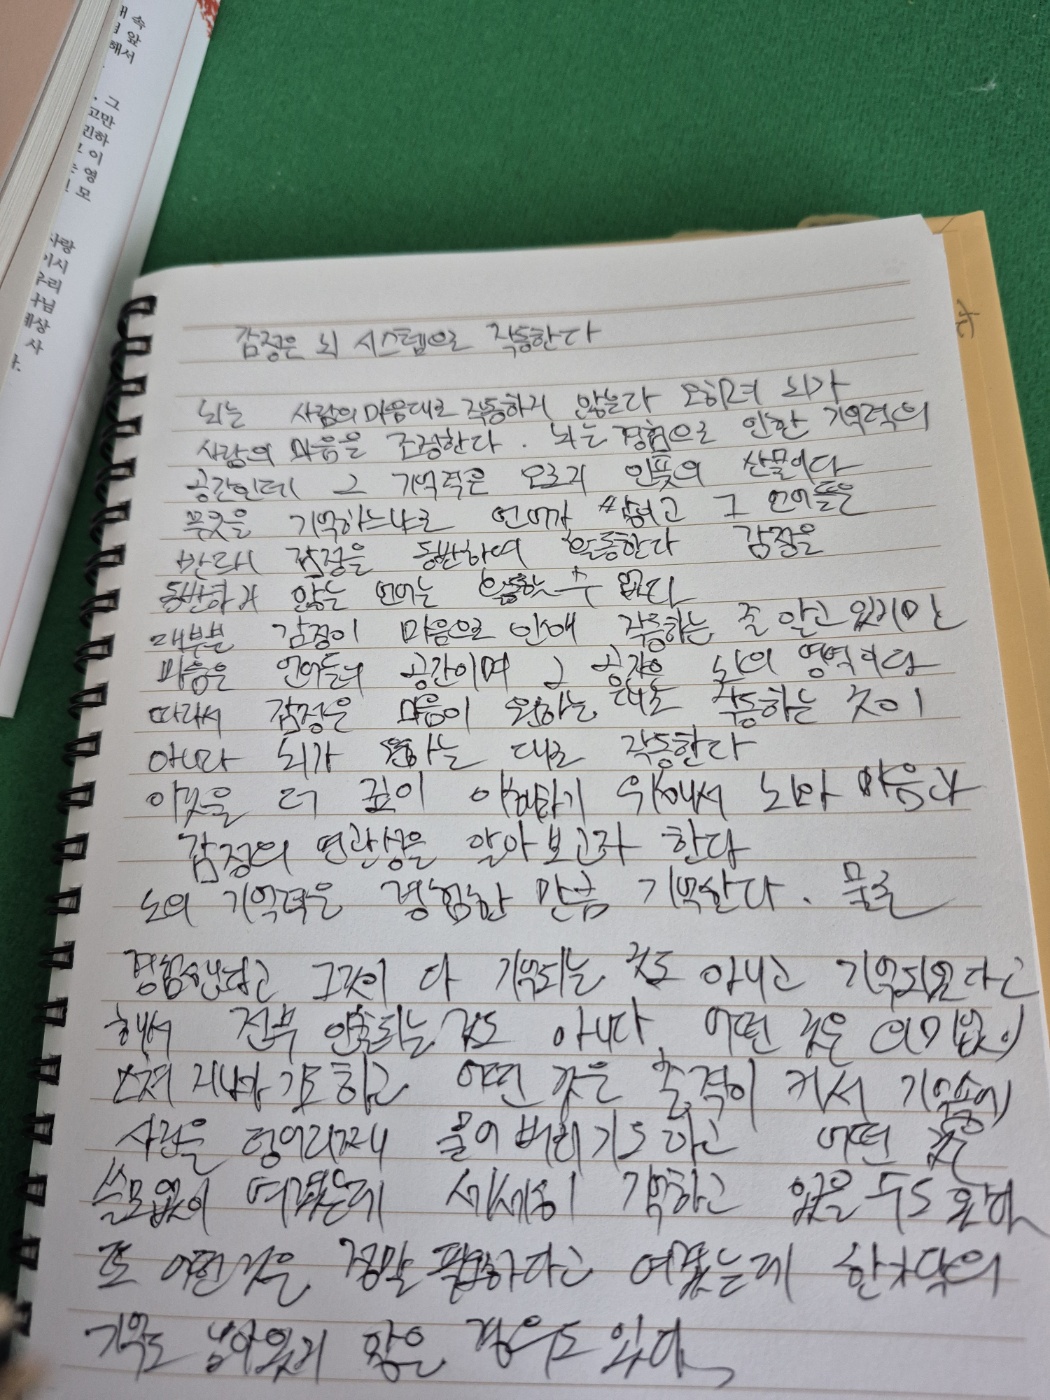 내 속
앞
해서
그
고만
민하
이
영
모
사랑
이시
우리
나님
세상
사
감정은 뇌 시스템으로 작동한다
뇌는 사람의 마음대로 작동하지 않는다 오히려 뇌가
사람의 마음을 조정한다. 뇌는 경험으로 인한 기억력의
공간인데 그 기억력은 오로지 인풋의 산물이다
무엇을 기억하느냐로 언어가 고 그 언어들은
반드시 감정을 동반하여 활동한다 감정을
동반하지 않는 언어는 활동할 수 없다
대부분 감정이 마음으로 인해 작동하는 줄 알고 있지만
마음은 언어들의 공간이며 그 공간은 뇌의 영역이다
따라서 감정은 마음이 원하는 대로 작동하는 것이
아니라 뇌가 원하는 대로 작동한다
이것을 더 깊이 이해하기 위해서 뇌와 마음과
감정의 연관성을 알아보고자 한다
뇌의 기억력은 경험한 만큼 기억한다. 물론
경험했다고 그것이 다 기억되는 것도 아니고 기억되었다고
해서 전부 인출되는 것도 아니다. 어떤 것은 의미없이
스쳐 지나가기도 하고 어떤 것은 충격이 커서 기억속에
사람을 덩어리째 물어버리기도 하고 어떤 것은
쓸모없이 여겼는데 세세하게 기억하고 있을 수도 있다
또 어떤 것은 정말 필요하다고 여겼는데 한가닥의
기억도 남아있지 않은 경우도 있다